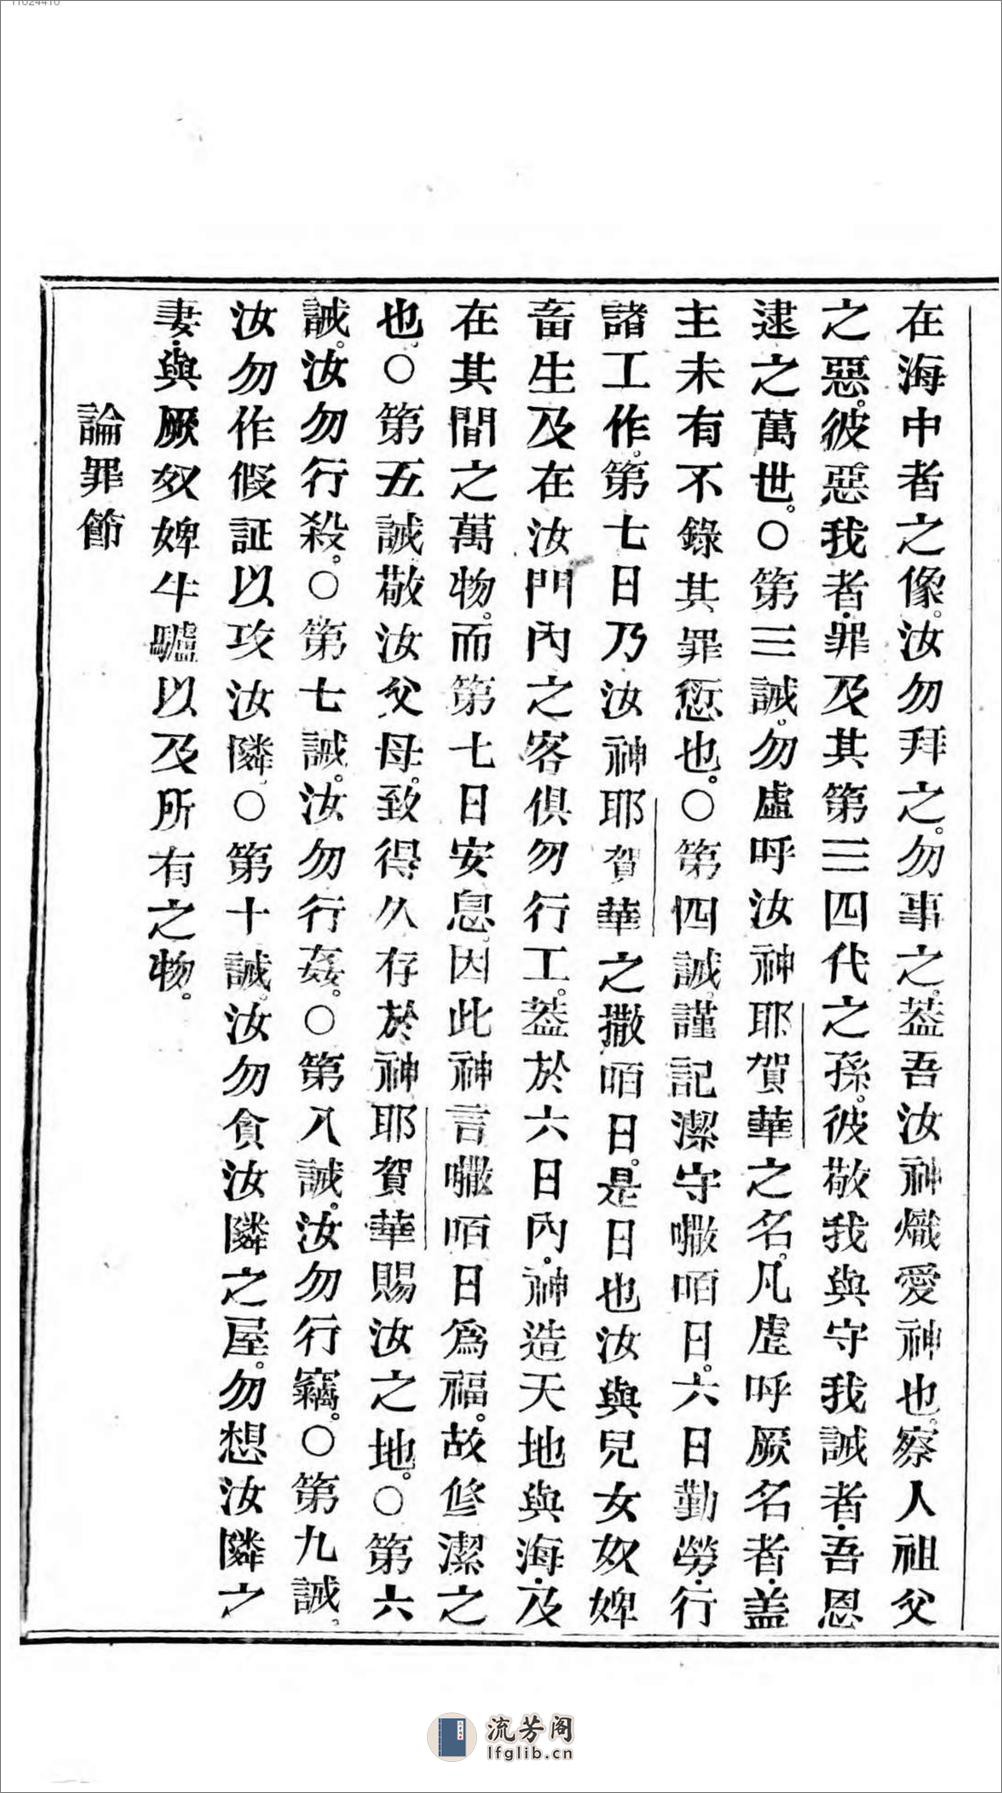 在海中者之像。汝勿拜之。勿事之。葢吾汝神熾愛神也。察人祖父
之惡。彼惡我者。罪及其第三四代之孫。彼敬我與守我誡者。吾恩
逮之萬世。○第三誡。勿虛呼汝神耶賀華之名。凡虛呼厥名者。盖
主未有不錄其罪愆也。○第四誡。謹記潔守𡂿咟日。六日勤勞。行
諸工作。第七日乃汝神耶賀華之撒咟日。是日也汝與兒女奴婢
畜生及在汝門內之客俱勿行工。葢於六日內。神造天地與海。及
在其間之萬物。而第七日安息。因此神言𡂿咟日爲福。故修潔之
也。○第五誡敬汝父母。致得久存於神耶賀華賜汝之地。○第六
誡。汝勿行殺。○第七誡。汝勿行姦。○第八誡。汝勿行竊。○第九誡。
汝勿作假証以攻汝隣。○第十誡。汝勿貪汝隣之屋。勿想汝隣之
妻。與厥奴婢牛驢以及所有之物。
論罪節
流芳阁
lfglib.cn